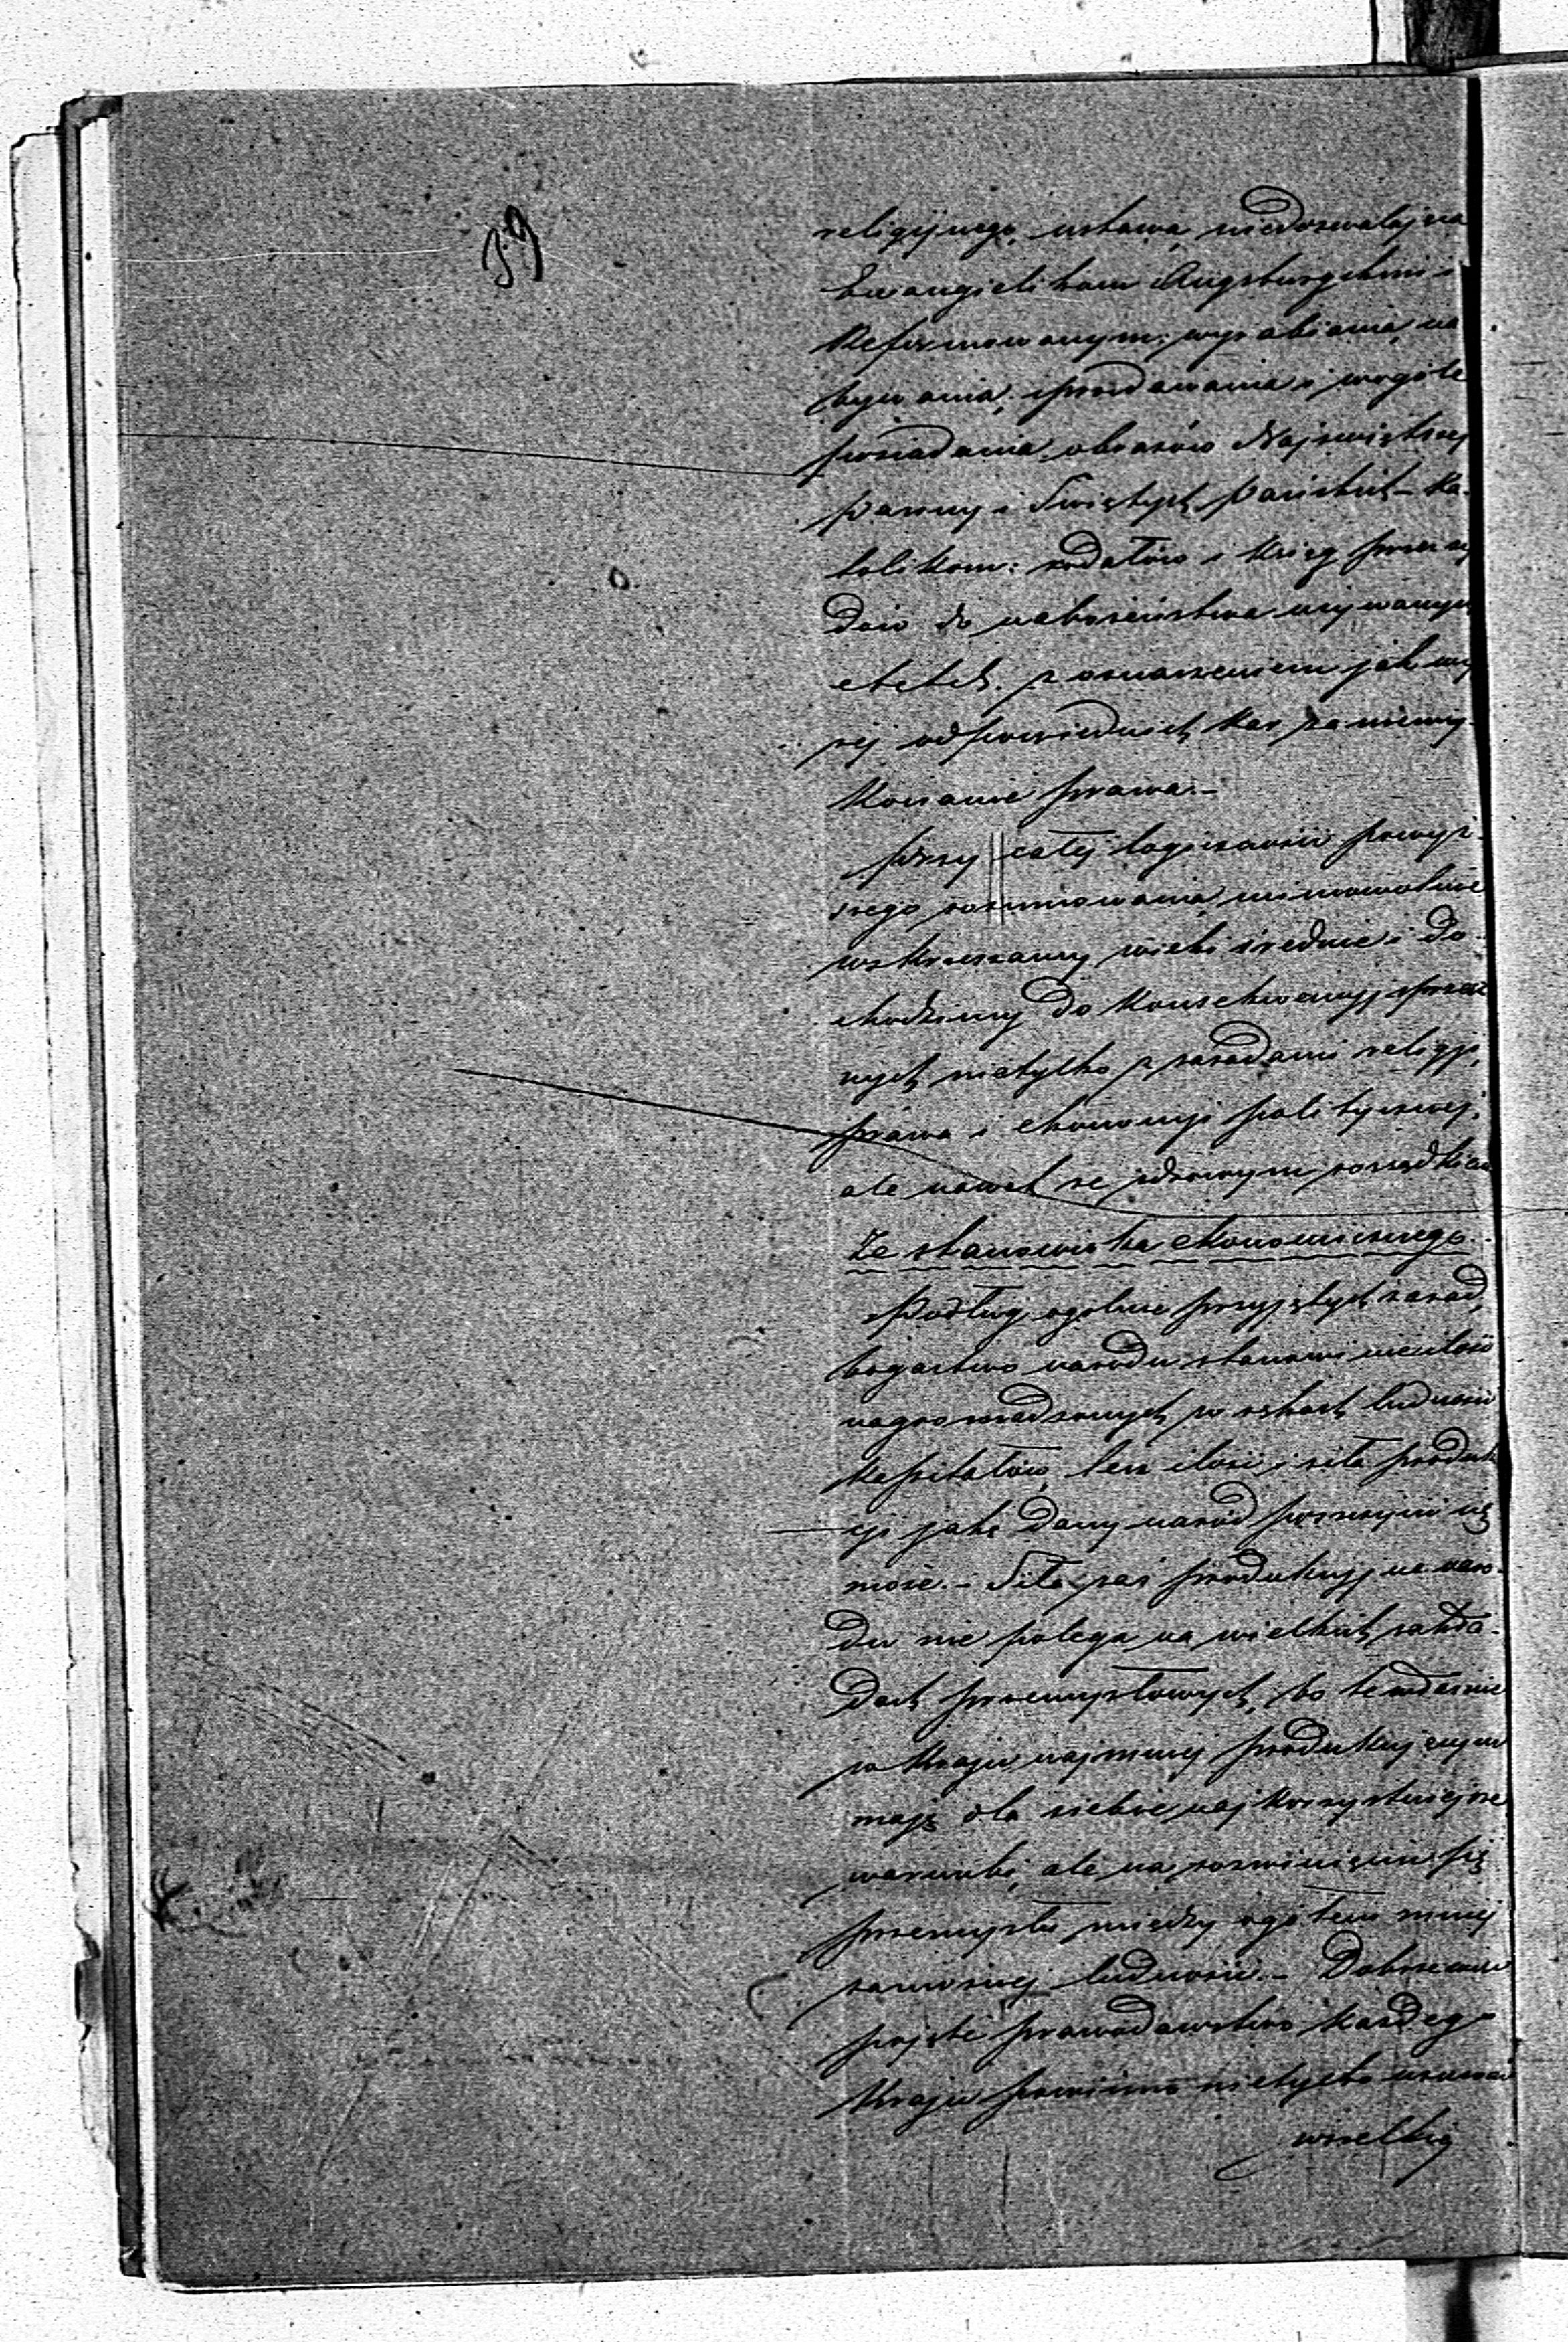 religijnego, ustawa niedozwalająca
Ewangielikom Augsburgskim i
Reformowanym: wyrabiania, na
bywania, sprzedawania i wogóle
posiadania obrazów Najświętszej
Panny i Świętych Pańskich – ka-
tolikom: rodałów i ksiąg przez ży
dów do nabożeństwa używanych
etctch. z oznaczeniem jak wy
żej odpowiednich kar za niewy-
konanie prawa. –
Przy całej logiczności powyż-
szego rozumowania mimowolnie
wskrzeszamy wieki średnie i do-
chodzimy do konsekwencyj sprzecz
nych nietylko z zasadami religji,
prawa i ekonomji politycznej,
ale nawet ze zdrowym rozsądkiem
Ze stanowiska ekonomicznego.
Podług ogólnie przyjętych zasad,
bogactwo narodu stanowi nie ilość
nagromadzonych w rękach ludności
kapitałów, lecz ilość i siła produk
cji jaką dany naród poszczycić się
może. – Siła zaś produkcyjna naro-
du nie polega na wielkich zakła-
dach przemysłowych, bo te właśnie
w kraju najmniej produkującym
mają dla siebie najkorzystniejsze
warunki, ale na rozwinięciu się
przemysłu między ogółem mniej
zamożnej ludności. – Dobrze
pojęte prawodawstwo każdego
kraju powinno nietylko usuwać
wszelkie